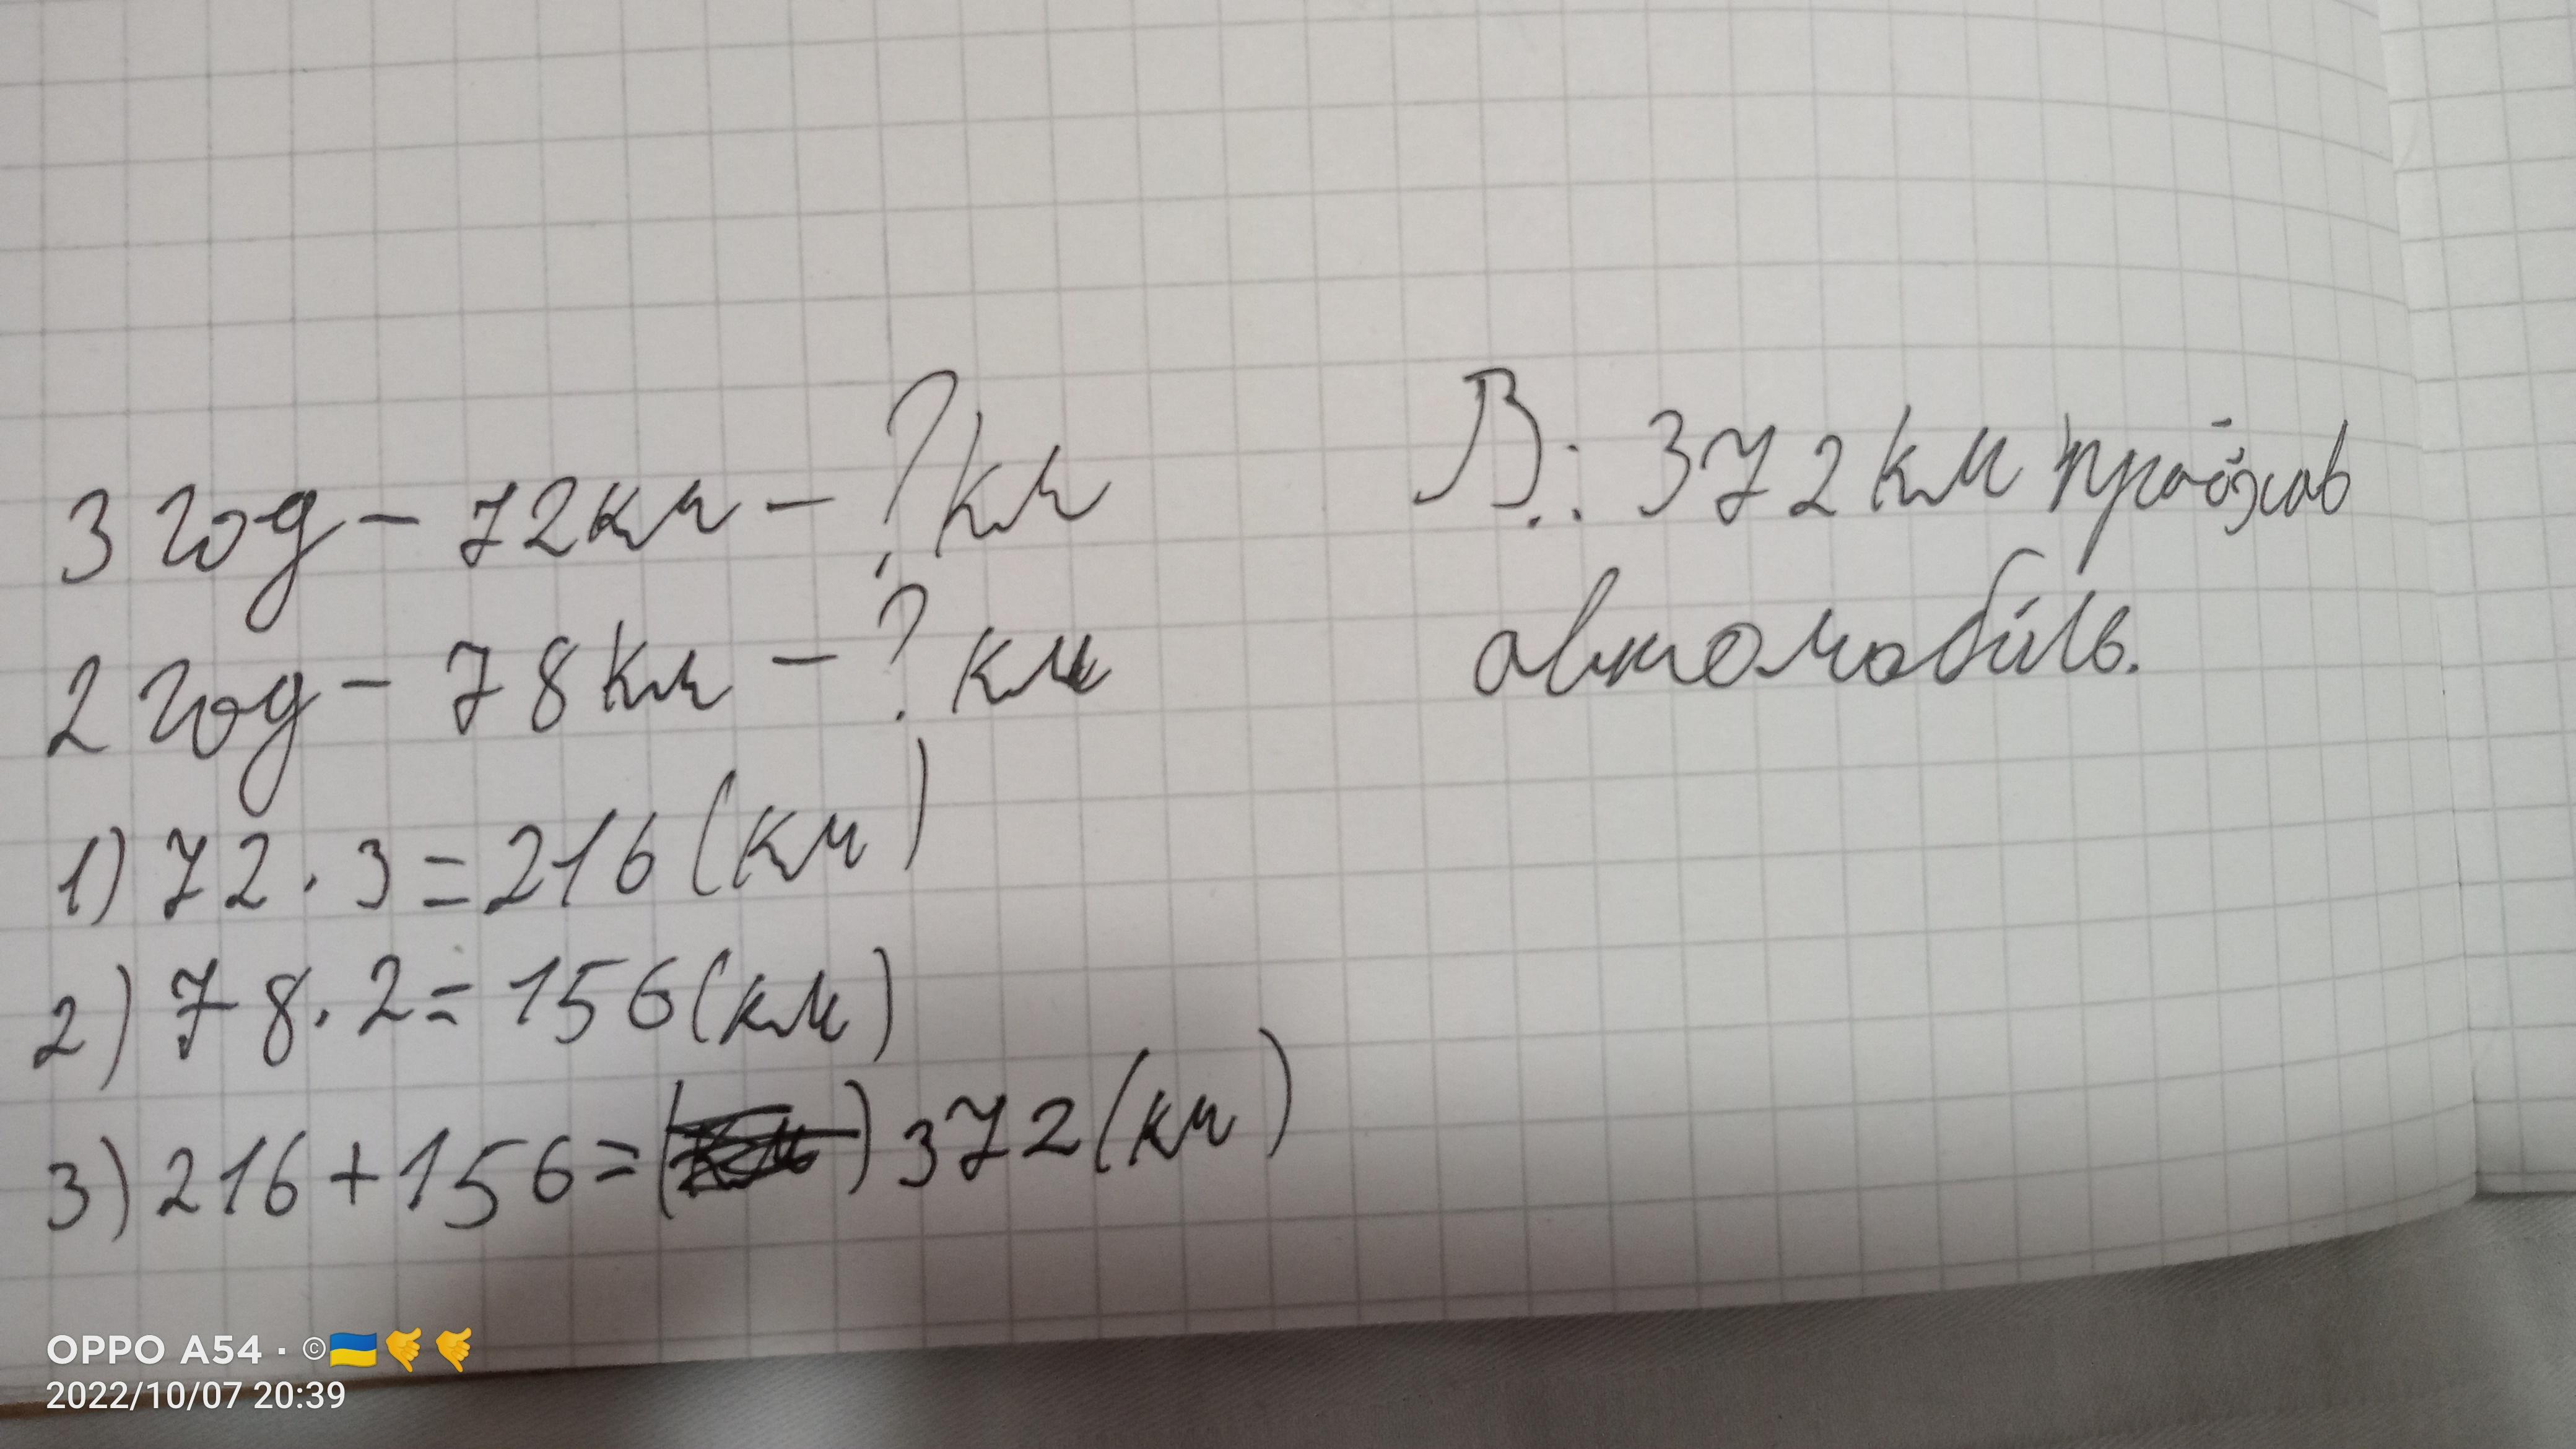 3 год - 72км - ?км
2 год - 78км - ? км
1) 72 · 3 = 216 (км)
2) 78 · 2 = 156 (км)
3) 216 + 156 = 372 (км)
В.: 372 км проїхав
автомобіль.
OPPO A54 · ©🇺🇦🤙🤙
2022/10/07 20:39